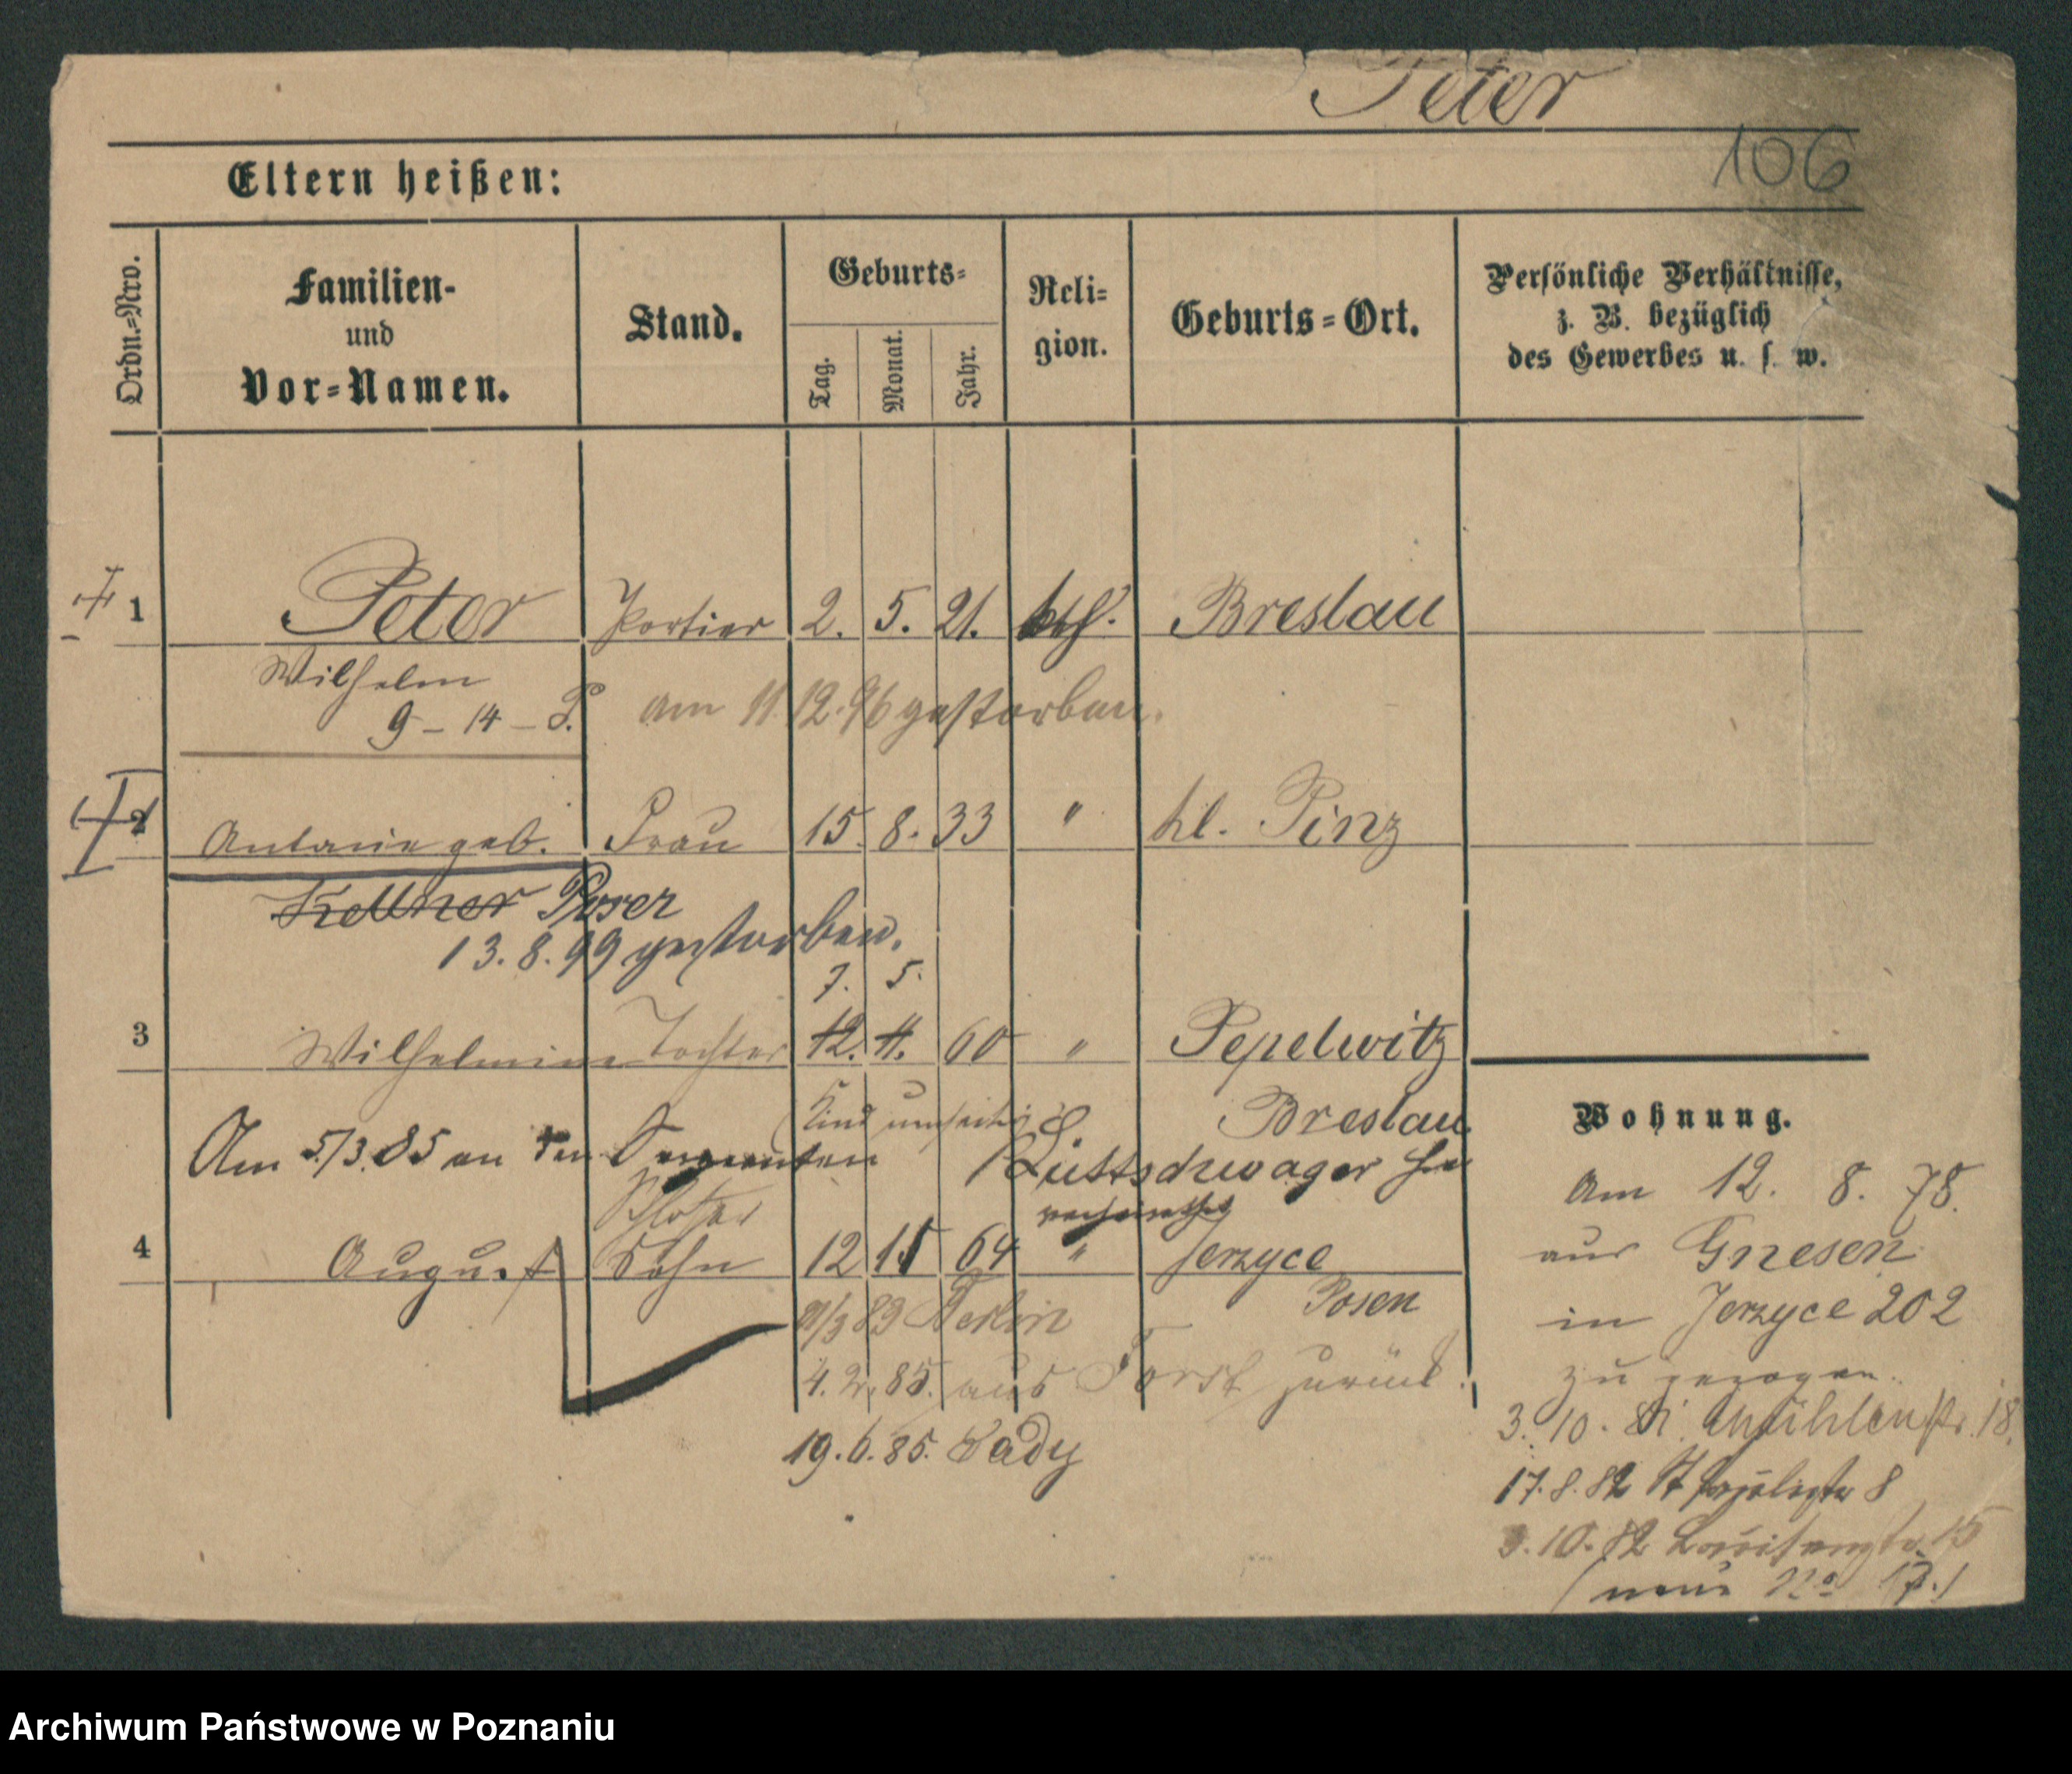 Peter
106
Eltern heißen:
Ordn.=Nro.
Familien-
und
Vor=Namen.
Stand.
Geburts=
Tag.
Monat.
Jahr.
Reli=
gion.
Geburts=Ort.
Persönliche Verhältnisse,
z. B. bezüglich
des Gewerbes u. s. w.
1 Peter Portier 2. 5. 21. kth. Breslau
Wilhelm
9 - 14 -
am 11.12.96 gestorben.
2 Antonie geb. Frau 15. 8. 33 " kl. Pinz
Kellner Poser
13.8.99 gestorben.
7. 5.
3 Wilhelmine Tochter 12. 11. 60 " Pepelwitz
Breslau
Kind umseitig
Am 5/3.85 an den Sergeanten Luttschwager
verheirathet
Schlosser
4 August Sohn 12 11 64 " Jerzyce
Posen
83 Berlin
4. 2. 85. aus Forst zurück.
19.6.85. Sady
Wohnung.
Am 12. 8. 78.
aus Gnesen
in Jerzyce 202
zugezogen.
3. 10. 81. Mühlenstr. 18.
17.8.82 8
3.10.82 Louisenstr. 15
(neue No 17.)
Archiwum Państwowe w Poznaniu